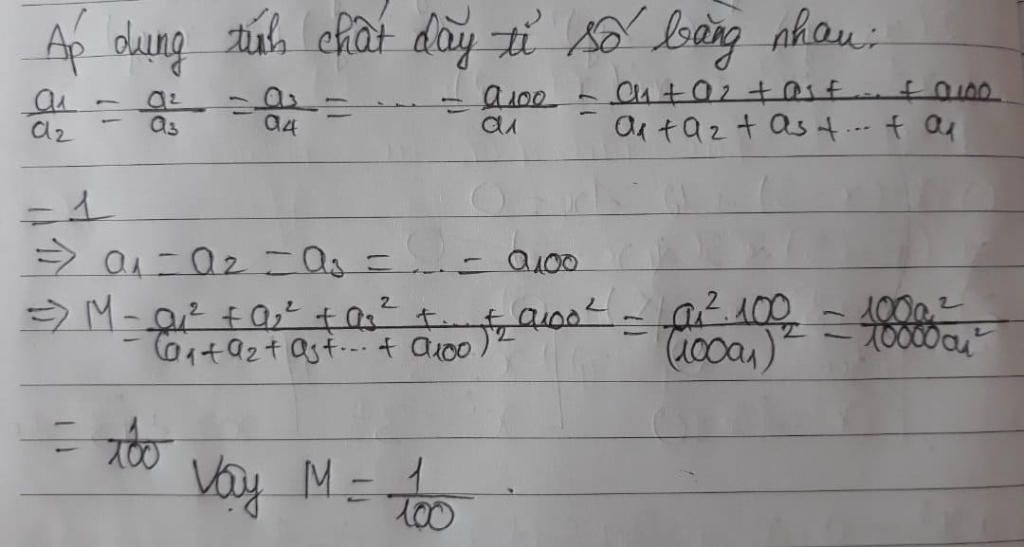 Áp dụng tính chất dãy tỉ số bằng nhau:
a1/a2 = a2/a3 = a3/a4 = ... = a100/a1 = (a1 + a2 + a3 + ... + a100)/(a1 + a2 + a3 + ... + a1)
= 1
⇒ a1 = a2 = a3 = ... = a100
⇒ M = (a1² + a2² + a3² + ... + a100²)/(a1 + a2 + a3 + ... + a100)² = (a1² . 100)/(100a1)² = 100a²/10000a1²
= 1/100
Vậy M = 1/100 .